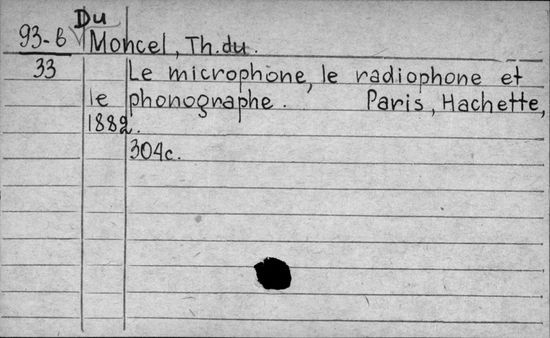 Du
93-6 Moncel, Th.du.
33 Le microphone, le radiophone et
le phonographe. Paris, Hachette,
1882.
304c.